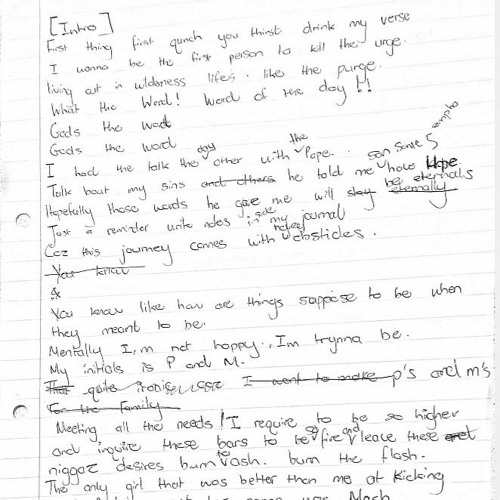 [Intro]
First thing first qunch you thirst drink my verse
I wanna be the first person to kill the urge.
living out in wilderness lifes. like the purge.
What the Word! Word of the day!!
Gods the word
Gods the word
I had the talk the other day with the Pope. son some 5
Talk bout my sins and others he told me have Hope
Hopefully those words he gave me will stay be eternals eternally
Just a reminder write notes inside my journal
Coz this journey comes with obsticles.
You know
&
You know like how are things suppose to be when
they meant to be.
Mentally I,m not happy. I,m trynna be.
My initials is P and M.
That quite I want to make p's and m's
for the family
Meeting all the needs / I require to be so higher
and inquire these bars to be so fire and leave these
niggaz desires burn to ash. burn the flash.
The only girl that was better than me at kicking